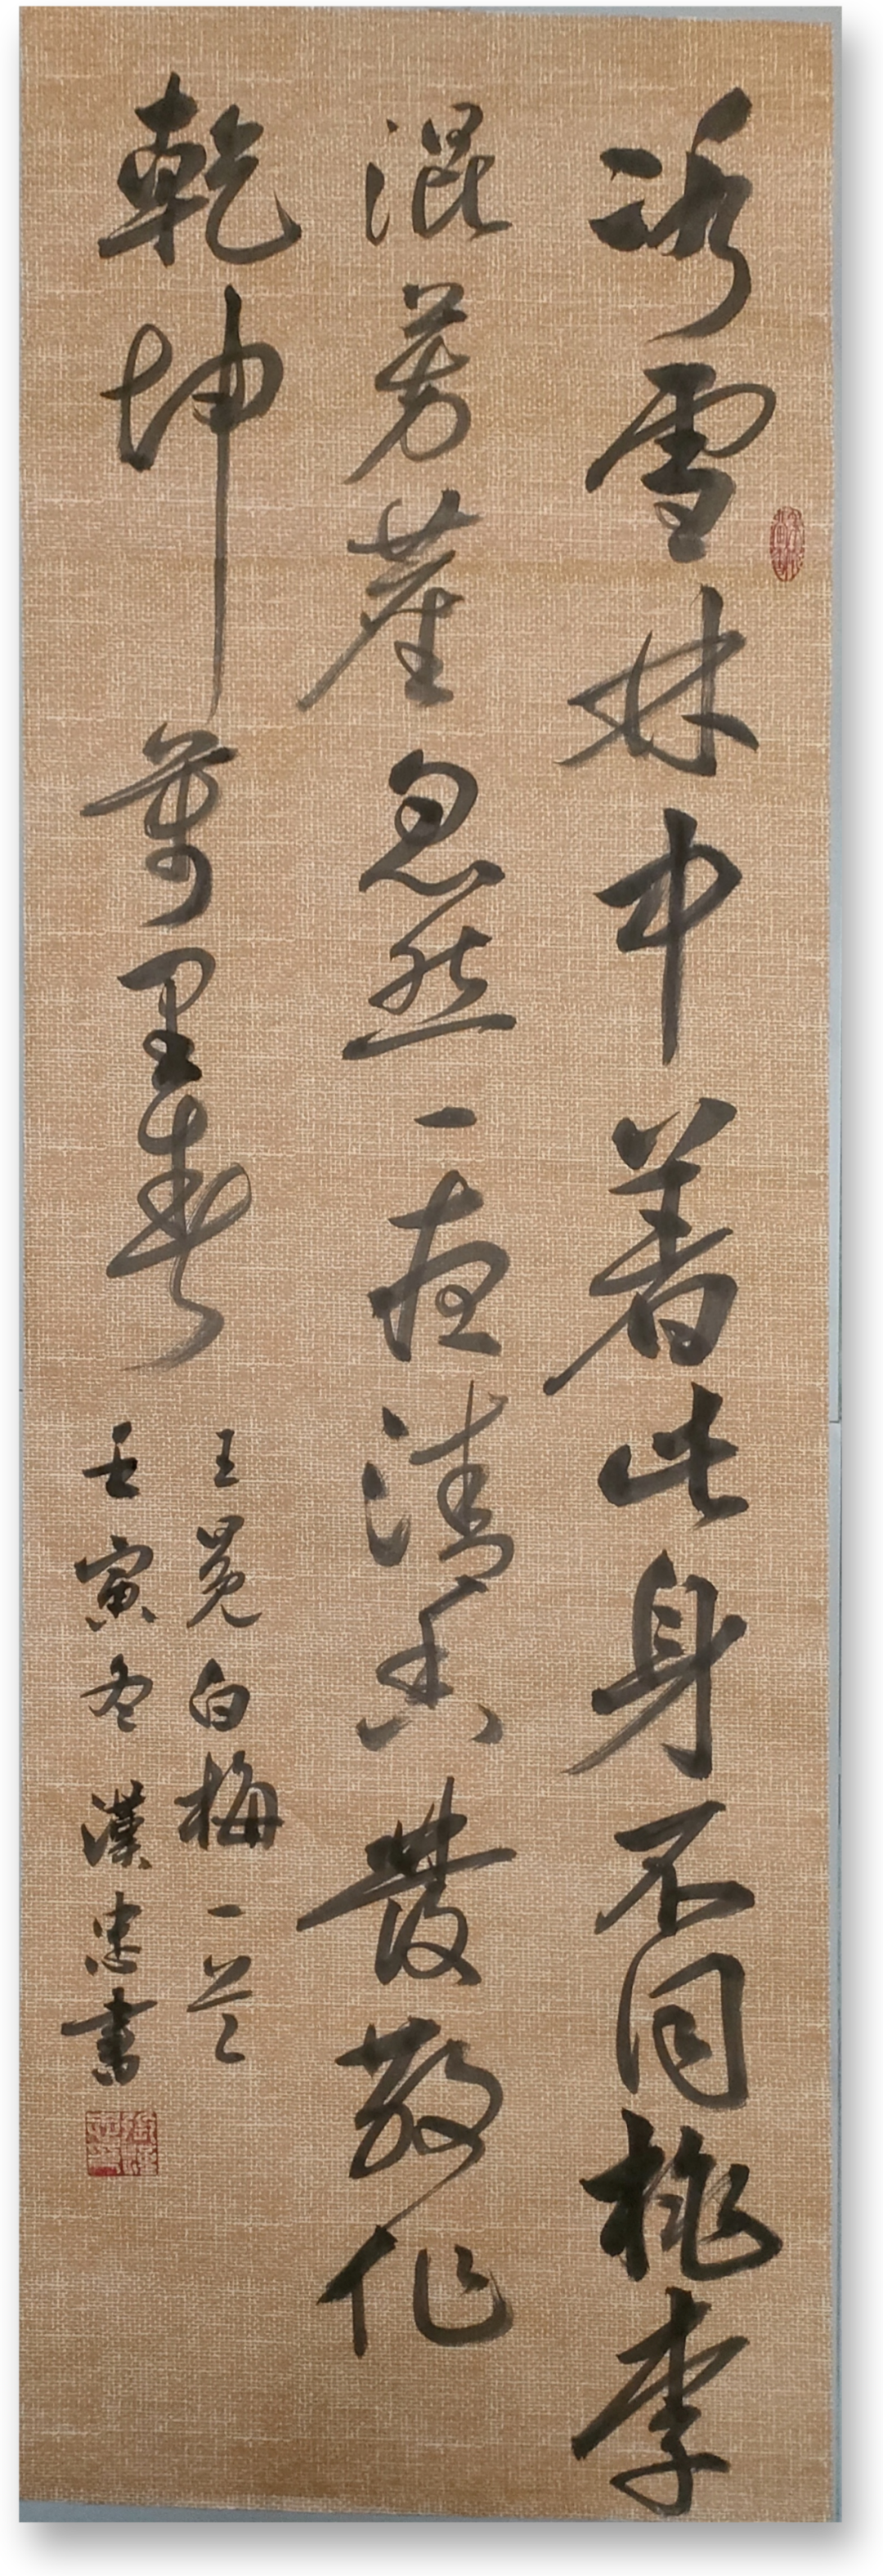 冰雪林中著此身不同桃李
混芳塵忽然一夜清香發散作
乾坤萬里春
王冕白梅一首
壬寅冬漢忠書